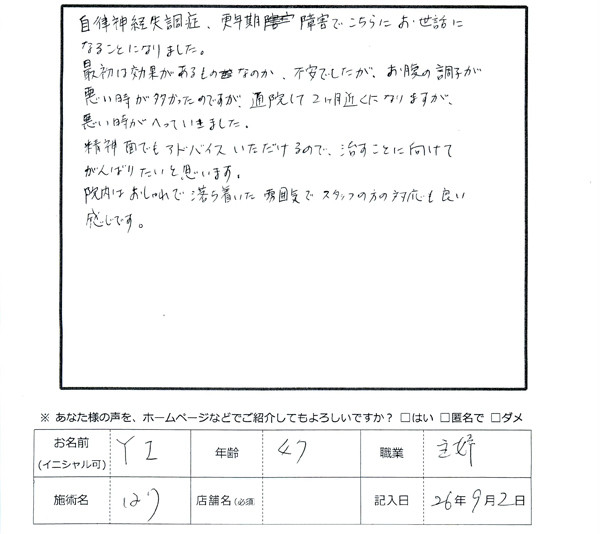 自律神経失調症、更年期障害でこちらにお世話に
なることになりました。
最初は効果があるものなのか、不安でしたが、お腹の調子が
悪い時が多かったのですが、通院して2ヶ月近くになりますが、
悪い時がへっていきました。
精神面でもアドバイスいただけるので、治すことに向けて
がんばりたいと思います。
院内はおしゃれで落ち着いた雰囲気でスタッフの方の対応も良い
感じです。
※ あなた様の声を、ホームページなどでご紹介してもよろしいですか？ □はい □匿名で □ダメ
お名前 (イニシャル可) Y I 年齢 47 職業 主婦
施術名 はり 店舗名 (必須) 記入日 26年9月2日